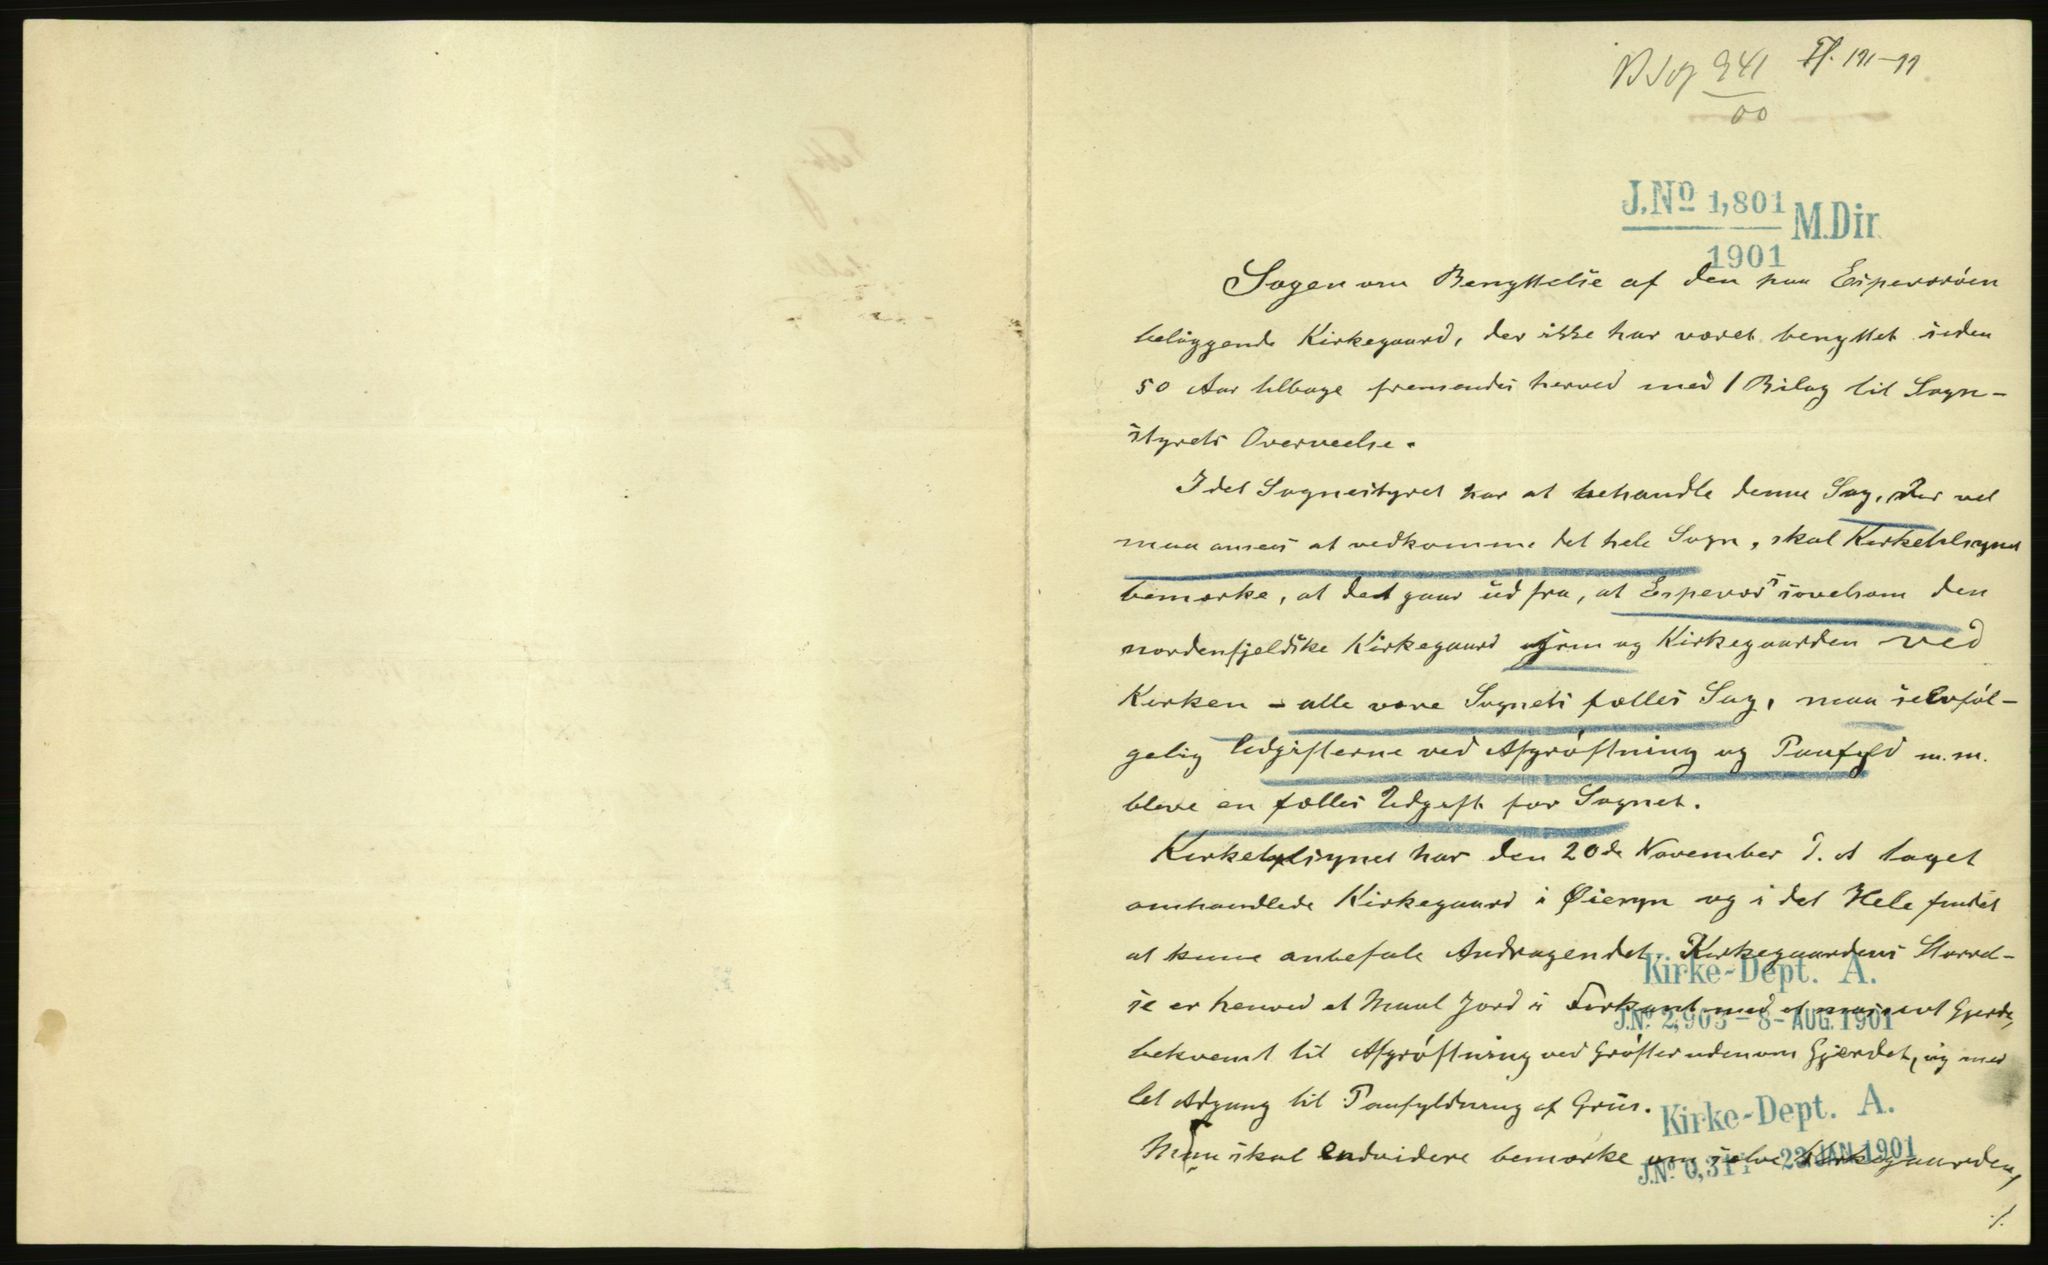 241 Pf. 171-99
00
J.No 1,801 M.Dir.
1901
Sagen om Benyttelse af den paa Espeværöen
beliggende Kirkegaard, der ikke har været benyttet siden
50 Aar tilbage fremsendes herved med 1 Bilag til Sogn-
styrets Overveielse.
Idet Sognestyret har at behandle denne Sag, der vel
maa ansees at vedkomme det hele Sogn, skal Kirketilsynet
bemærke, at det gaar ud fra, at Espevær's saavelsom den
nordenfjeldske Kirkegaard og Kirkegaarden ved
Kirken - alle være Sognets fælles Sag, maa selvføl-
gelig Udgifterne ved Afgrøftning og Paafyld m.m.
blive en fælles Udgift for Sognet.
Kirketilsynet har den 20de November d. A taget
omhandlede Kirkegaard i Øiesyn og i det Hele fundet
at kunne anbefale Andragendet. Kirkegaardens Størrel-
Kirke-Dept. A.
se er henved et Maal Jord i Firkant med et massivt Gjerde,
J.No. 2,905 - 8 - AUG. 1901
bekvemt til Afgrøftning ved Grøfter udenom Gjerdet, og med
let Adgang til Paafyldning af Grus.
Kirke-Dept. A.
Man skal endvidere bemærke om selve Kirkegaarden,
J.No. 23 JAN 1901
./.